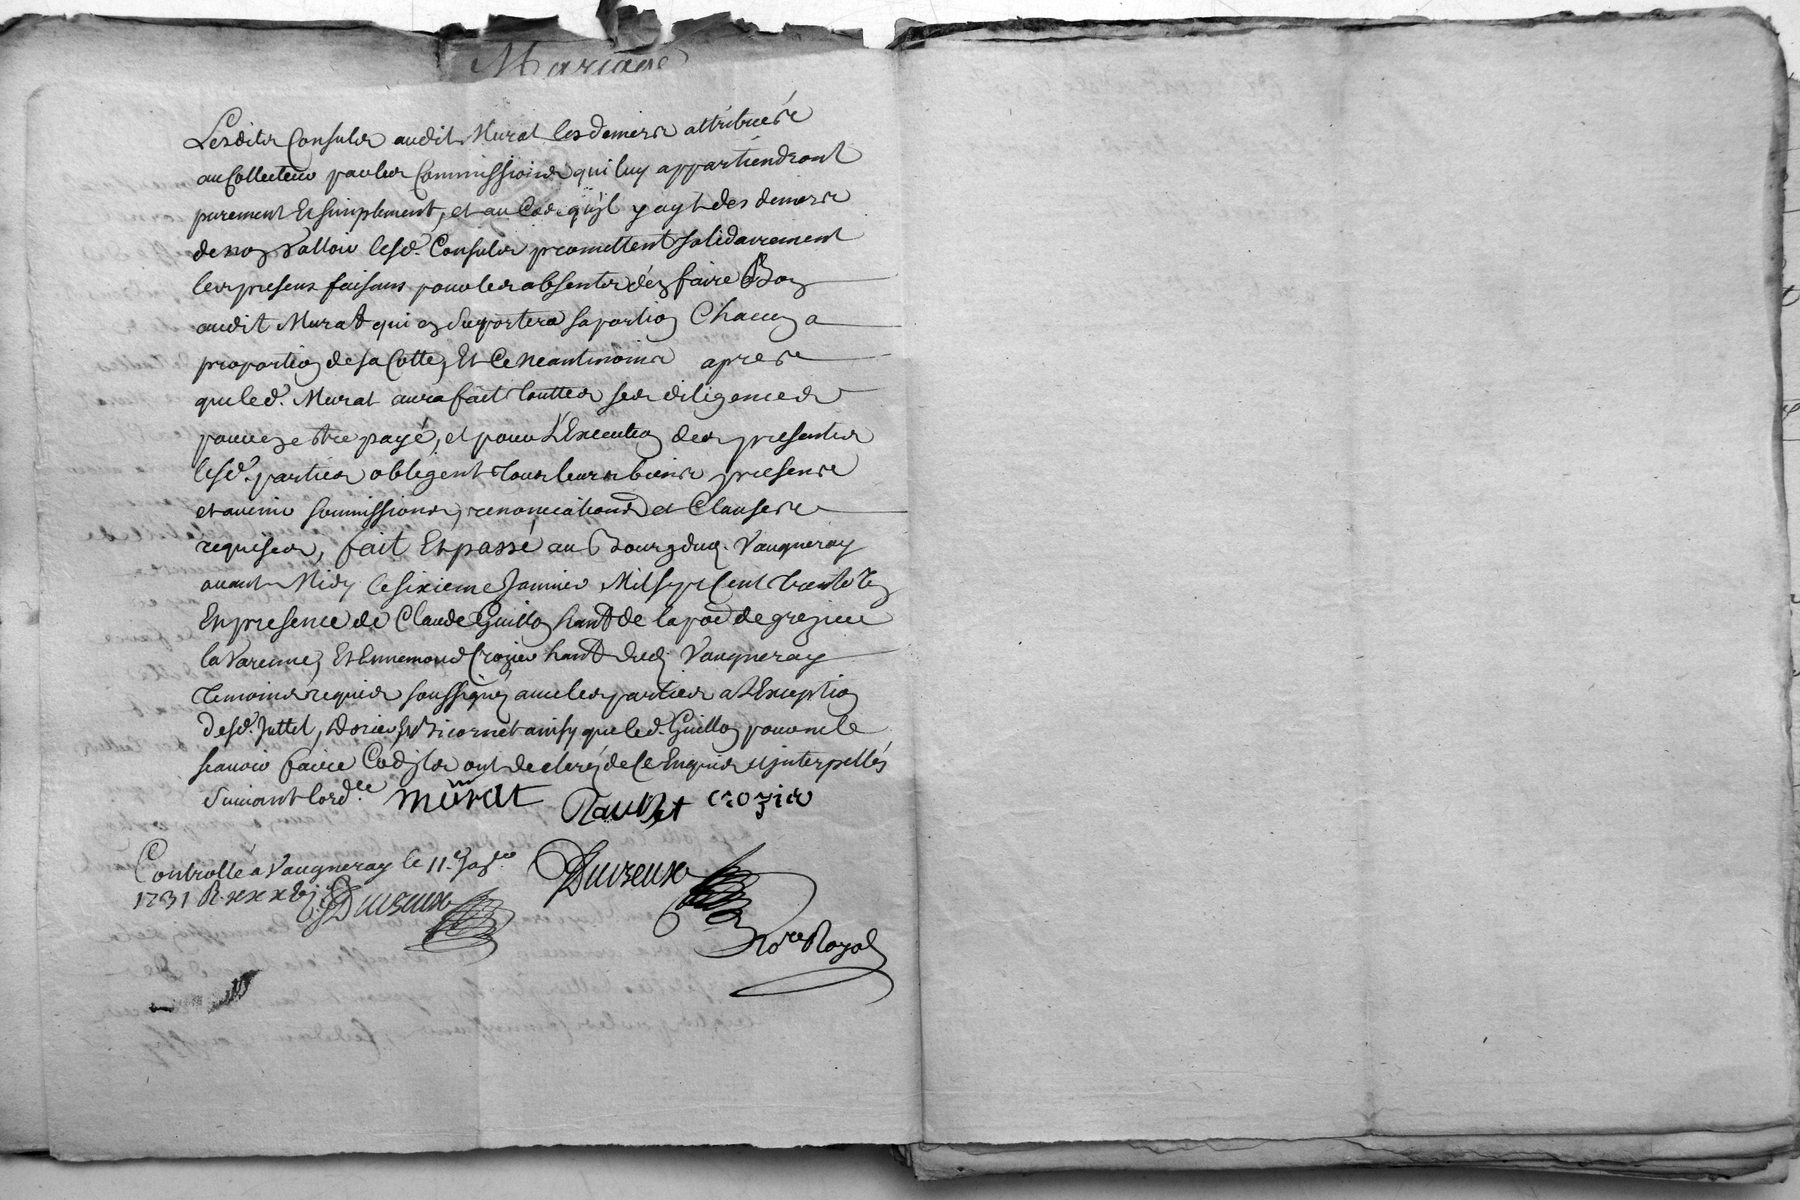 Mariage
Lesdits Consuls audit Murat les deniers attribuées
au Collecteur par les Commissions qui luy appartiendront
purement Et simplement, et au Cas qu'jl y ayt des deniers
de non valloir lesd. Consuls promettent solidairement
les presens faisans pour les absents d'en faire Bon
audit Murat qui en suportera sa portion Chacun a
proportion de sa Cotte, Et Ce neantmoins apres
que led. Murat aura fait touttes ses diligences
pour estre payé, et pour L'Execution des presentes
lesd. parties obligent tous leurs biens presens
et avenir soumissions, renonciations et Clauses
requises, fait Et passé au Bourg dud. Vaugneray
avant Midy le sixieme Janvier Mil sept Cent trente Un
En presence de Claude Guillon hant de la poë de grezieu
la Varenne, Et Ennemond Crozier hant dud. Vaugneray
temoins requis soussignez avec les parties a L'Exception
desd. Juttet, Dorier, Et Bicornet ainsy que led. Guillon pour ne le
scavoir faire Co'e jls ont declaré de Ce Enquis et jnterpellés
suivant lord.ce murat Raullet crozier
Controllé a Vaugneray le 11.e Janv.er
1731 R. Duvreux Duvreux
No.re Royal